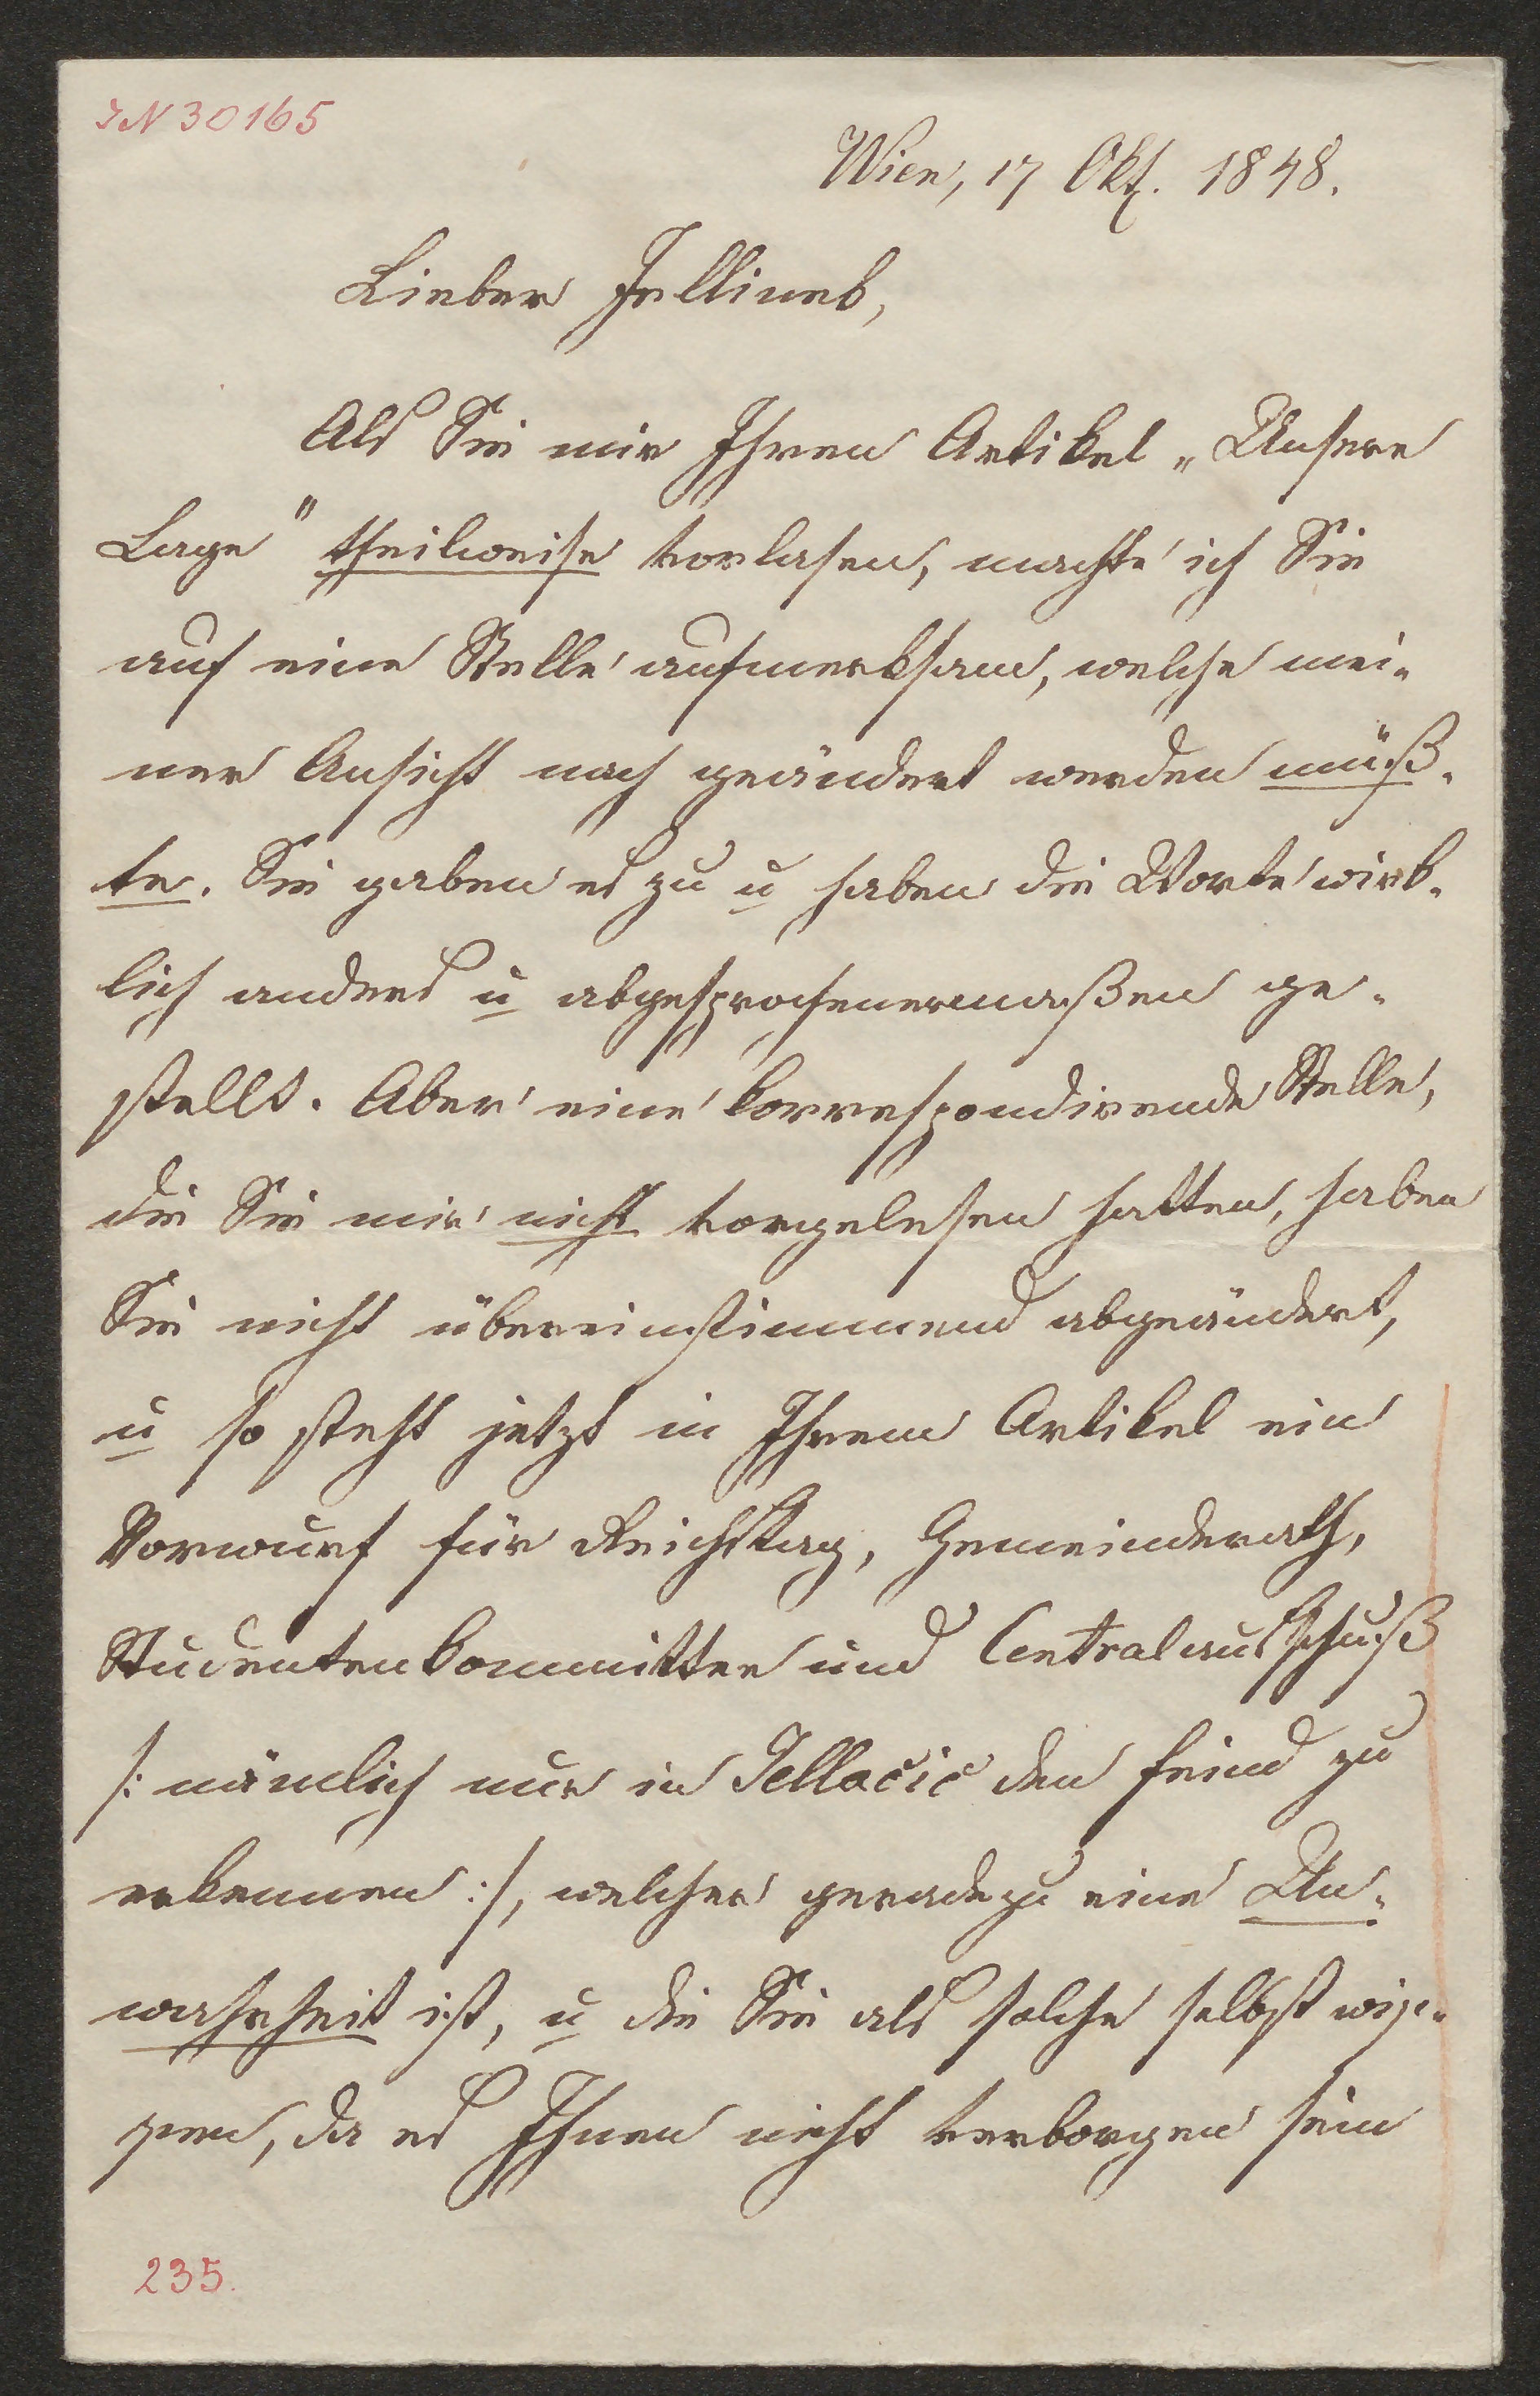 IN 30165
Wien, 17 Okt. 1848.
Lieber Jellinek,
Als Sie mir Ihren Artikel „Unsere
Lage" theilweise vorlasen, machte ich Sie
auf eine Stelle aufmerksam, welche mei-
ner Ansicht nach geändert werden müß-
te. Sie gaben es zu u haben die Worte wirk-
lich anders u abgesprochenermaßen ge-
stellt. Aber eine korrespondirende Stelle,
die Sie mir nicht vorgelesen hatten, haben
Sie nicht übereinstimmend abgeändert,
u so steht jetzt in Ihrem Artikel ein
Vorwurf für Reichstag, Gemeinderath,
Studentenkommittee und Centralausschuß
/: nämlich nur in Jellačić den Feind zu
erkennen :/, welcher geradezu eine Un-
wahrheit ist, u die Sie als solche selbst wis-
sen, da es Ihnen nicht verborgen sein
235.